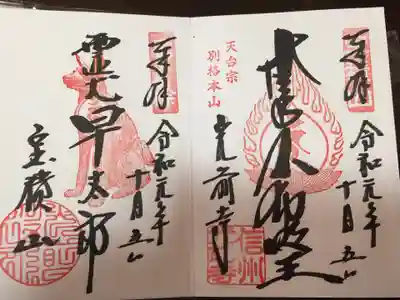 奉拝
令和元年十月五日
不動明王
天台宗
別格本山
光前寺
信州
奉拝
令和元年十月五日
霊犬早太郎
宝積山